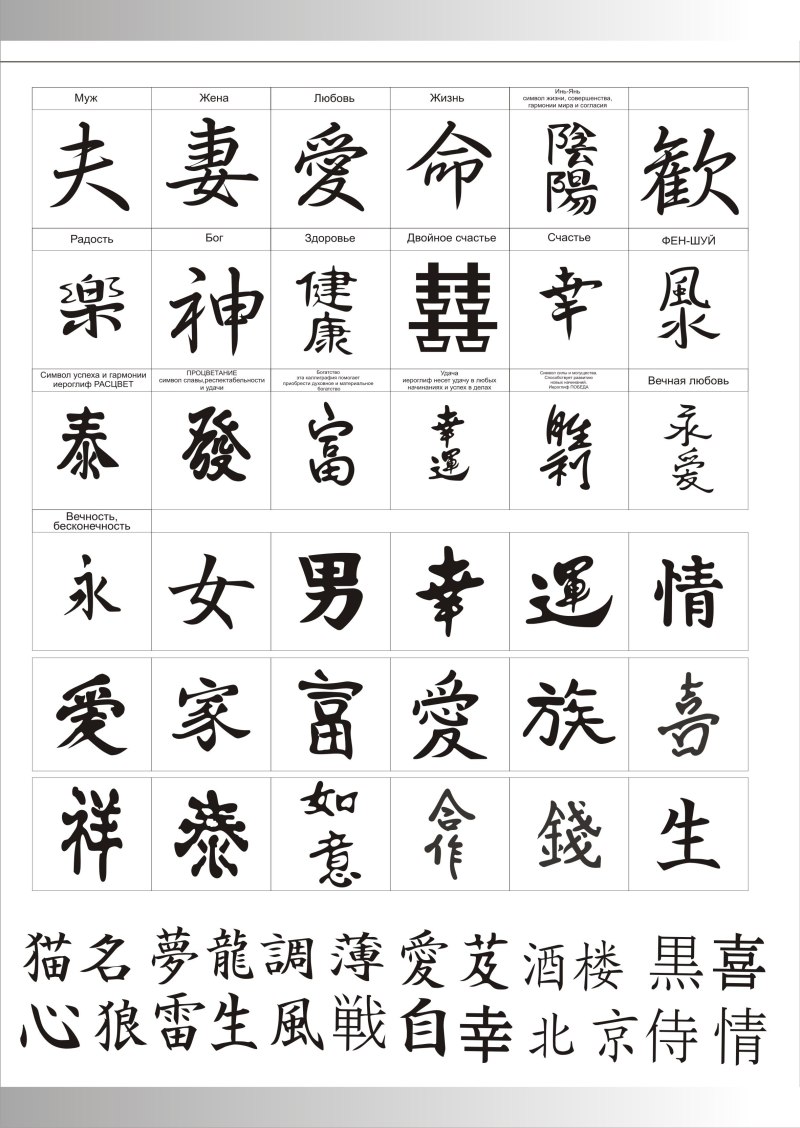 Муж Жена Любовь Жизнь Инь-Янь
символ жизни, совершенства,
гармонии мира и согласия
夫 妻 愛 命 陰陽 歓
Радость Бог Здоровье Двойное счастье Счастье ФЕН-ШУЙ
楽 神 健康 囍 幸 風水
Символ успеха и гармонии
иероглиф РАСЦВЕТ
ПРОЦВЕТАНИЕ
символ славы,респектабельности
и удачи
Богатство
эта каллиграфия помогает
приобрести духовное и материальное
богатство
Удача
иероглиф несет удачу в любых
начинаниях и успех в делах
Символ силы и могущества.
Способствует развитию
новых начинаний.
Иероглиф ПОБЕДА
Вечная любовь
泰 發 富 幸運 勝利 永愛
Вечность,
бесконечность
永 女 男 幸 運 情
愛 家 富 愛 族 喜
祥 泰 如意 合作 錢 生
猫名 夢龍調 薄 愛 芨 酒楼 黒 喜
心 狼 雷生風 戦 自 幸 北京 侍 情